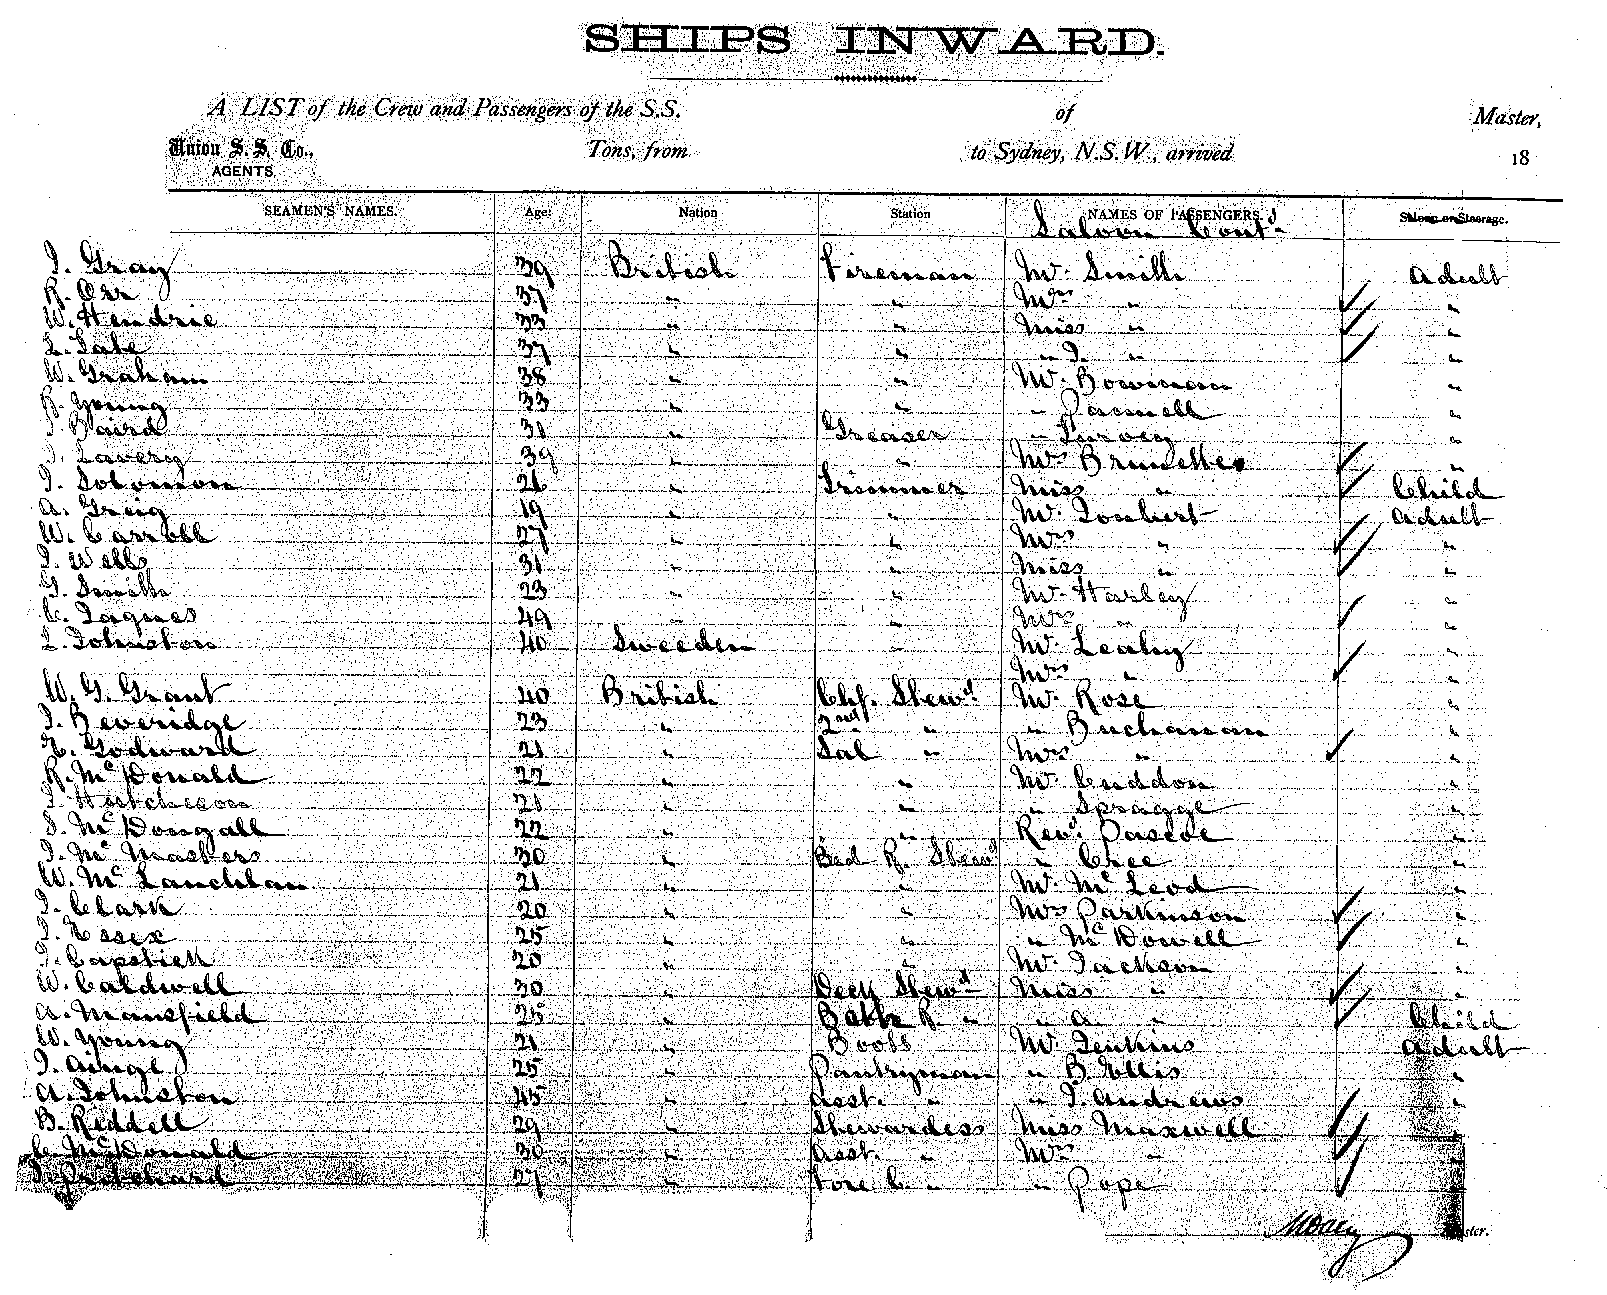 SHIPS INWARD.
A LIST of the Crew and Passengers of the S.S. of Master,
Union S. S. Co., Tons, from to Sydney, N.S.W., arrived 18
AGENTS.
SEAMEN'S NAMES. Age: Nation Station NAMES OF PASSENGERS. Saloon or Steerage.
Saloon Contd
J. Gray 39 British Fireman Mr. Smith Adult
R. Orr 37 " " Mrs " "
W. Hendrie 33 " " Miss " "
L. Tate 37 " " " J. " "
W. Graham 38 " " Mr. Bowman "
R. Young 33 " " " Parnell "
J. Baird 31 " Greaser " Turvey "
J. Lavery 39 " " Mrs Brunette "
J. Solomon 26 " Trimmer Miss " Child
A. Greig 19 " " Mr. Joubert Adult
W. Carroll 27 " " Mrs " "
J. Wells 31 " " Miss " "
G. Smith 23 " " Mr. Harley "
C. Jaques 49 " " Mrs " "
L. Johnston 40 Sweeden " Mr. Leahy "
Mrs "
W. G. Grant 40 British Chf. Stewd Mr. Rose "
J. Beveridge 23 " 2nd " " Buchanan "
E. Godward 21 " Sal " Mrs " "
R. McDonald 22 " " Mr. Cuddon "
J. Hutcheson 21 " " " Spragge "
S. McDougall 22 " " Revd. Pascoe "
J. McMasters 30 " Bed R. Stewd " Cree "
W. McLauchlan 21 " " Mr. McLeod "
J. Clark 20 " " Mrs Parkinson "
J. Essex 25 " " " McDowell "
J. Capstick 20 " " Mr. Jackson "
W. Caldwell 30 " Deck Stewd Miss " "
A. Mansfield 25 " Bath R. " " A. " Child
W. Young 21 " Boots Mr. Jenkins Adult
J. Aingl 25 " Pantryman " B. Ellis "
A. Johnston 45 " Asst. " " J. Andrews "
B. Riddell 29 " Stewardess Miss Maxwell "
C. McDonald 30 " Asst. " Mrs " "
J. Pritchard 27 " Fore C. " " Pope "
Master.